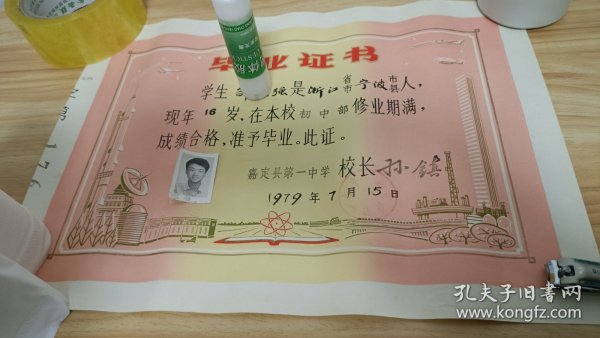 毕业证书
学生 强是浙江省市宁波市县人，
现年16岁，在本校初中部修业期满，
成绩合格，准予毕业。此证。
嘉定县第一中学 校长 孙镇
1979年7月15日
孔夫子旧书网
www.kongfz.com